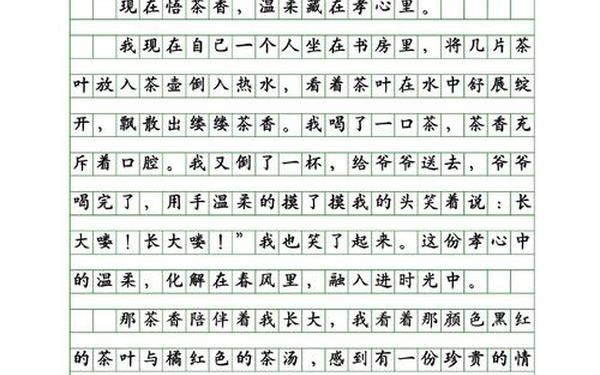 现在悟茶香，温柔藏在孝心里。
我现在自己一个人坐在书房里，将几片茶
叶放入茶壶倒入热水，看着茶叶在水中舒展绽
开，飘散出缕缕茶香。我喝了一口茶，茶香充
斥着口腔。我又倒了一杯，给爷爷送去，爷爷
喝完了，用手温柔的摸了摸我的头笑着说：长
大喽！长大喽！”我也笑了起来。这份孝心中
的温柔，化解在春风里，融入进时光中。
那茶香陪伴着我长大，我看着那颜色黑红
的茶叶与橘红色的茶汤，感到有一份珍贵的情